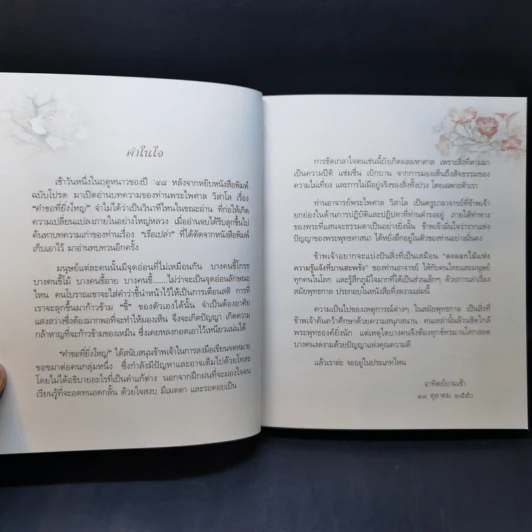 คำในใจ
เช้าวันหนึ่งในฤดูหนาวของปี ๒๕๔๘ หลังจากหยิบหนังสือพิมพ์
ฉบับโปรด มาเปิดอ่านบทความของท่านพระไพศาล วิสาโล เรื่อง
“คำขอที่ยิ่งใหญ่” จำไม่ได้ว่าเป็นวันที่ไหนในขณะอ่าน ที่ก่อให้เกิด
ความเปลี่ยนแปลงภายในอย่างใหญ่หลวง เมื่ออ่านจบได้รีบลุกขึ้นไป
ค้นหาบทความเก่าของท่านเรื่อง “เรือเปล่า” ที่ได้ตัดจากหนังสือพิมพ์
เก็บเอาไว้ มาอ่านทบทวนอีกครั้ง
มนุษย์แต่ละคนนั้นมีจุดอ่อนที่ไม่เหมือนกัน บางคนขี้โกรธ
บางคนขี้โม้ บางคนขี้อาย บางคนขี้.......ไม่ว่าจะเป็นจุดอ่อนลักษณะ
ไหน คนโบราณเขาจะใส่คำว่าขี้นำหน้าไว้ให้เป็นการเตือนสติ การที่
เราจะลุกขึ้นมาก้าวข้าม “ขี้” ของตัวเองได้นั้น จำเป็นต้องอาศัย
แสงสว่างซึ่งต้องมากพอที่จะทำให้มองเห็น จึงจะเกิดปัญญา เกิดความ
กล้าหาญที่จะก้าวข้ามของเหม็น ซึ่งเคยหลงกอดเอาไว้เหนียวแน่นได้
“คำขอที่ยิ่งใหญ่” ได้สนับสนุนข้าพเจ้าในการลงมือเขียนจดหมาย
ขอขมาต่อคนกลุ่มหนึ่ง ซึ่งกำลังมีปัญหาและอาจเต็มไปด้วยโทสะ
โดยไม่ได้อธิบายอะไรที่เป็นคำแก้ต่าง นอกจากฝึกฝนที่จะมองใจตน
เรียนรู้ที่จะอดทนอดกลั้น ด้วยใจสงบ มีเมตตา และรอคอยเป็น
การขัดเกลาใจตนเช่นนี้บังเกิดผลมหาศาล เพราะสิ่งที่ตามมา
เป็นความปีติ แช่มชื่น เบิกบาน จากการมองเห็นถึงสัจธรรมของ
ความไม่เที่ยง และการไม่มีอยู่จริงของสิ่งทั้งปวง โดยเฉพาะตัวเรา
ท่านอาจารย์พระไพศาล วิสาโล เป็นครูบาอาจารย์ที่ข้าพเจ้า
ยกย่องในด้านการปฏิบัติและปฏิปทาที่ท่านดำรงอยู่ ภายใต้ท่าทาง
ของพระที่แสนจะธรรมดาเป็นอย่างยิ่งนั้น ข้าพเจ้ามั่นใจว่ารากแห่ง
ปัญญาของพระพุทธศาสนา ได้หยั่งลึกอยู่ในตัวของท่านอย่างมั่นคง
ข้าพเจ้าอยากจะแบ่งปันสิ่งที่เป็นเสมือน “ดงดอกไม้แห่ง
ความรู้แจ้งที่บานสะพรั่ง” ของท่านอาจารย์ ให้กับคนไทยและมนุษย์
ทุกคนในโลก และรู้สึกภูมิใจมากที่ได้เป็นส่วนเล็กๆ ด้วยการเล่าเรื่อง
สมัยพุทธกาล ประกอบในหนังสือที่งดงามเล่มนี้
ความเป็นไปของเหตุการณ์ต่างๆ ในสมัยพุทธกาล เป็นสิ่งที่
ข้าพเจ้าค้นคว้าศึกษาด้วยความสนุกสนาน คนเหล่านั้นล้วนชิดใกล้
พระพุทธองค์ยิ่งนัก แต่เหตุใดบางคนจึงต้องทุกข์ทรมานโศกสลด
บางคนงดงามด้วยปัญญาแห่งคุณความดี
แล้วเราล่ะ จะอยู่ในประเภทไหน
อาทิตย์ยามเช้า
๑๘ ตุลาคม